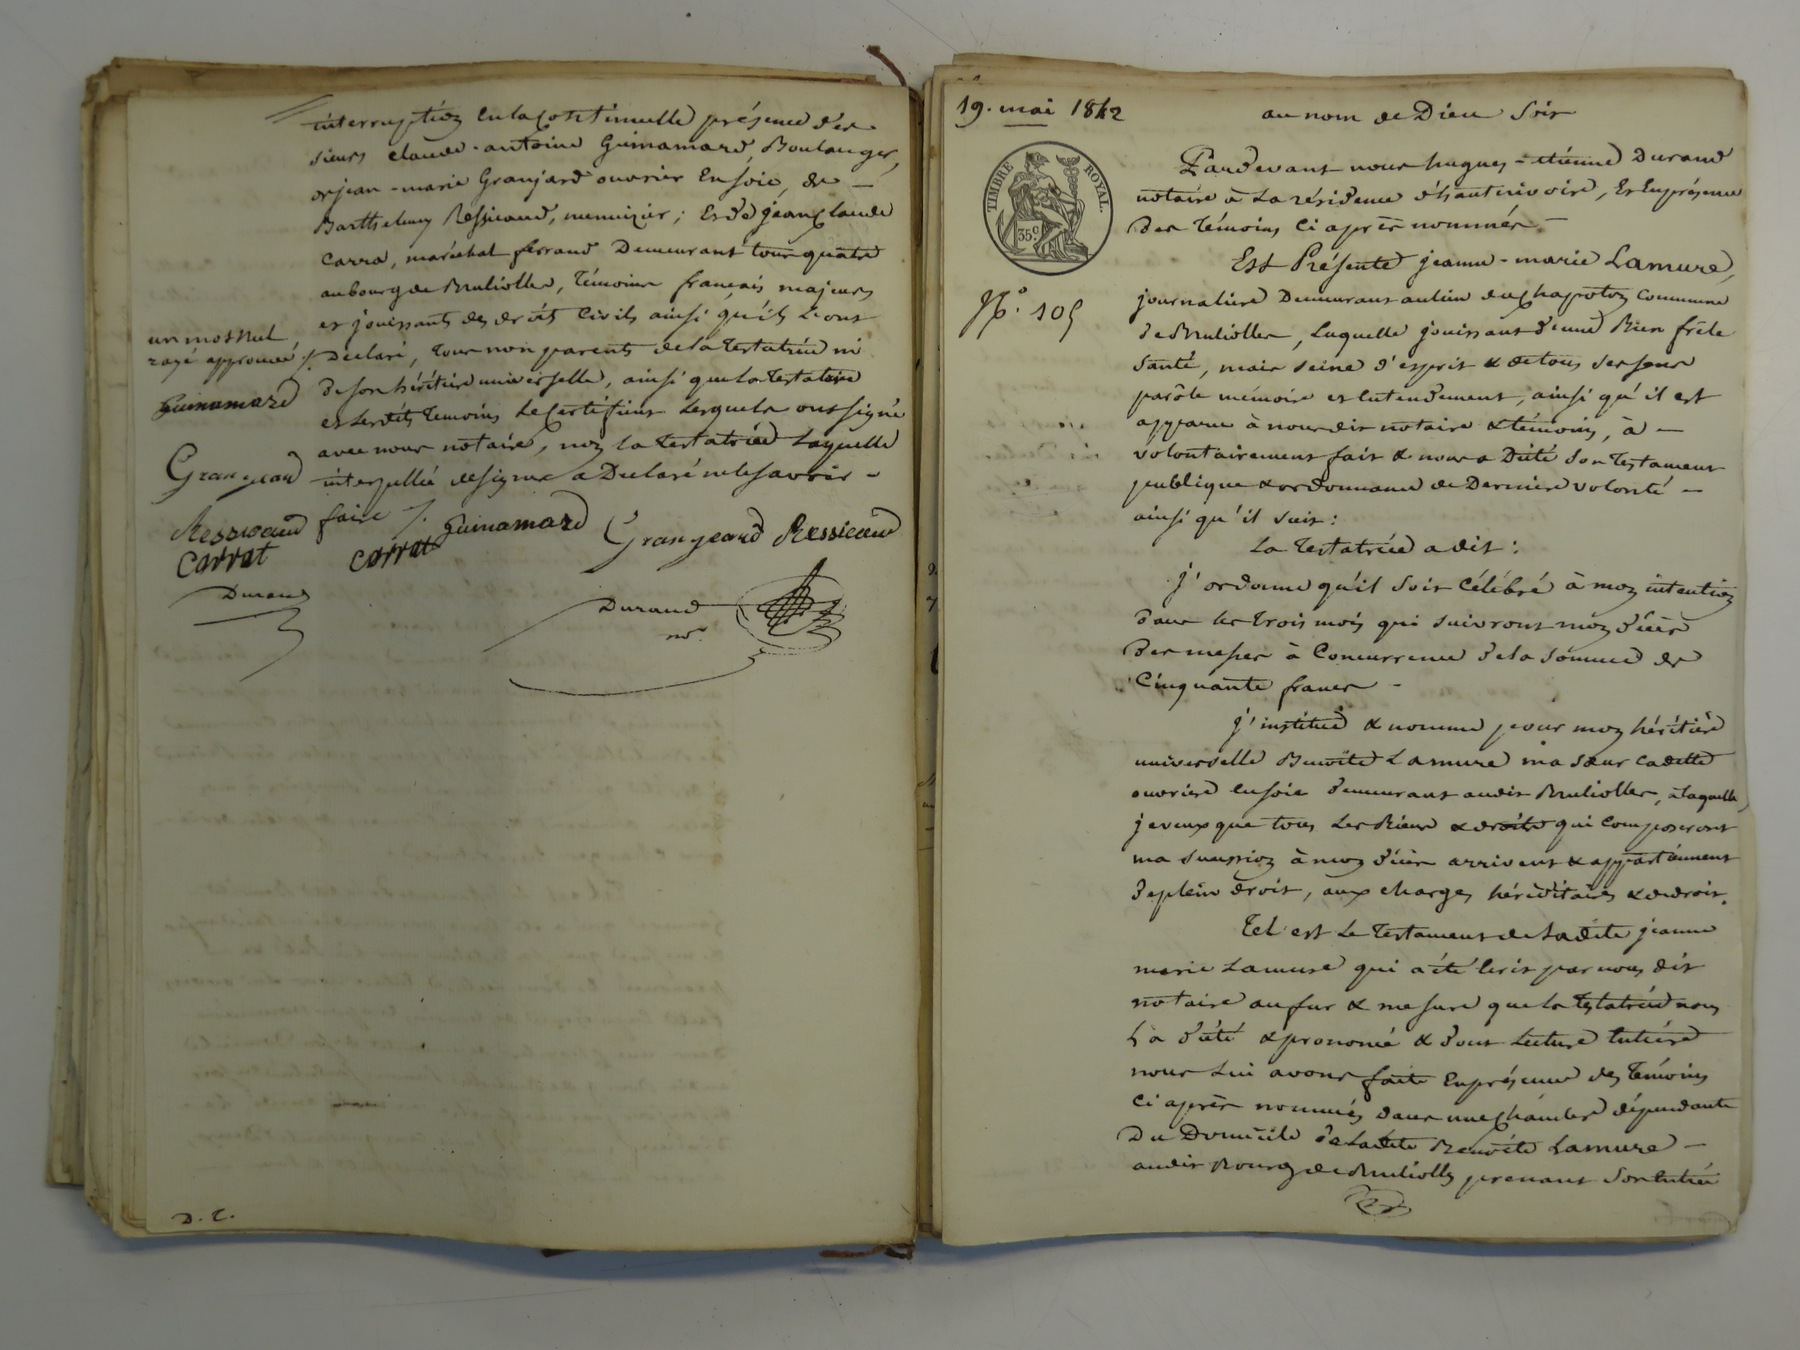 interruption en la continuelle présence des
sieurs claude-antoine Guinamard, Boulanger,
de jean-marie Granjard ouvrier en soie, de —
Barthelemy Ressicaud, menuizier; Et de jean Claude
Carra, maréchal ferrand Demeurant tous quatre
au bourg de Bruliolles, Témoins français majeurs
et jouissants des droits Civils ainsi qu'ils L'ont
Déclaré, tous non parents de la Testatrice ni
de son héritière universelle, ainsi que la Testatrice
et Lesdits Temoins Le Certifient Lesquels ont signé
avec nous notaire, non la Testatrice Laquelle
interpellée de signer a Déclaré ne le savoir -
faire ./.
un mot nul
rayé approuvé ./.
Guinamard
Granjeard
Ressicaud
Carrat
Durand
Carrat Guinamard Granjeard Ressicaud
Durand
nre
D. E.
19. mai 1842
TIMBRE ROYAL.
35c
No. 105
au nom de Dieu Soit
Pardevant nous hugues-étienne Durand
notaire à La résidence d'hauterivoire, Et En présence
Des Témoins Ci après nommés —
Est Présente jeanne-marie Lamure,
journalière Demeurant au lieu du Chapoton Commune
de Brulioller, Laquelle jouissant d'une Bien frêle
santé, mais seine d'esprit & de tous ses sens
parôle mémoire et Entendement, ainsi qu'il est
apparu à nous dit notaire & témoins, à —
volontairement fait & nous a Dicté son Testament
publique & ordonnance de Dernière volonté —
ainsi qu'il suit:
La Testatrice a dit:
j'ordonne qu'il soit Célébré à mon intention
dans les trois mois qui suivront mon décès
Des messes à Concurrence de la Somme de
Cinquante francs -
j'institue & nomme pour mon héritière
universelle Benoîte Lamure ma sœur Cadette
ouvrière En soie demeurant audit Brulioller, à laquelle
je veux que tous Les Biens & droits qui Composeront
ma succession à mon décès arrivent & appartiennent
de plein droit, aux charges héréditaires & de droit.
Tel est Le Testament de Ladite jeanne
marie Lamure qui a été Ecrit par nous dit
notaire au fur & mesure que la Testatrice nous
L'a dicté & prononcé & dont Lecture Entière
nous Lui avons faite En présence des Témoins
Ci après nommés dans une Chambre dépendante
Du Domicile de Ladite Benoîte Lamure —
audit Bourg de Brulioller prenant Son Entrée